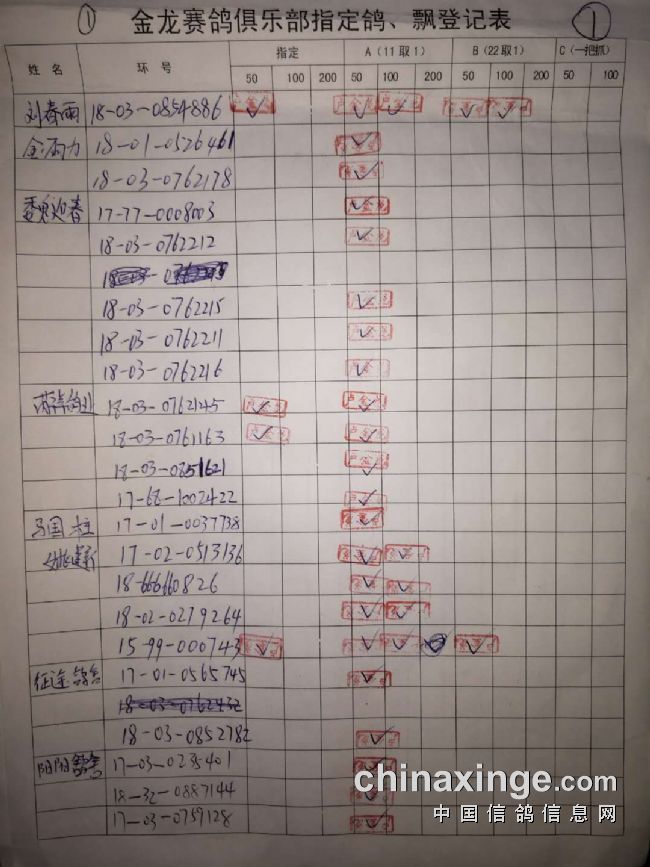 ① 金龙赛鸽俱乐部指定鸽、飘登记表 ①
姓名 环号 指定 A(11取1) B(22取1) C(一把抓)
50 100 200 50 100 200 50 100 200 50 100
刘春雨 18-03-0854886
18-01-0526461
18-03-0762178
魏迎春 17-77-0008003
18-03-0762212
18-03-0762215
18-03-0762211
18-03-0762216
18-03-0762145
18-03-0761163
18-03-0851621
17-68-1002422
马国柱 17-01-0037738
姚建新 17-02-0513136
18-666660826
18-02-0279264
15-99-000743
征途鸽舍 17-01-0565745
18-03-0762432
18-03-0852782
阳阳鸽舍 17-03-0235401
18-32-0887144
17-03-0759128
chinaxinge.com
中国信鸽信息网